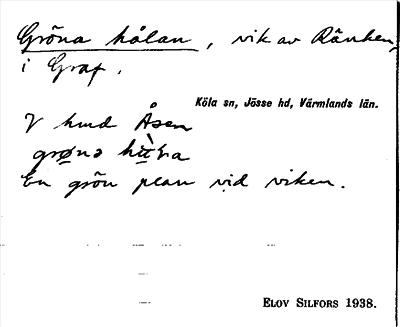 Gröna hålan, vik av Ränken,
i Graf.
Köla sn, Jösse hd, Värmlands län.
V hmd Åsen
En grön plan vid viken.
ELOV SILFORS 1938.